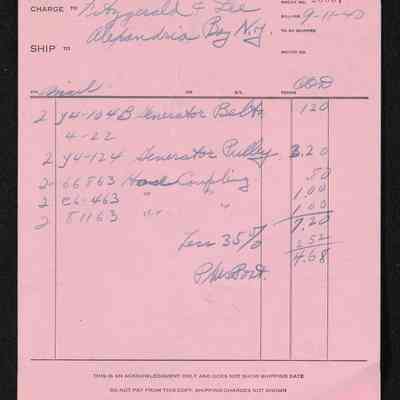 CHARGE TO Fitzgerald & Lee
BILLING 9-11-40
Alexandria Bay N.Y.
TO BE SHIPPED
SHIP TO
VIA mail
TERMS COD
2 Y4-104B Generator Belts 1 20
4-22
2 Y4-124 Generator Pulley 3.20
2 66863 Hood Coupling .80
2 C6-463 " " 1.00
2 81163 " " 1.00
7.20
Less 35% 2.52
4.68
Plus Post.
THIS IS AN ACKNOWLEDGMENT ONLY AND DOES NOT SHOW SHIPPING DATE
DO NOT PAY FROM THIS COPY. SHIPPING CHARGES NOT SHOWN